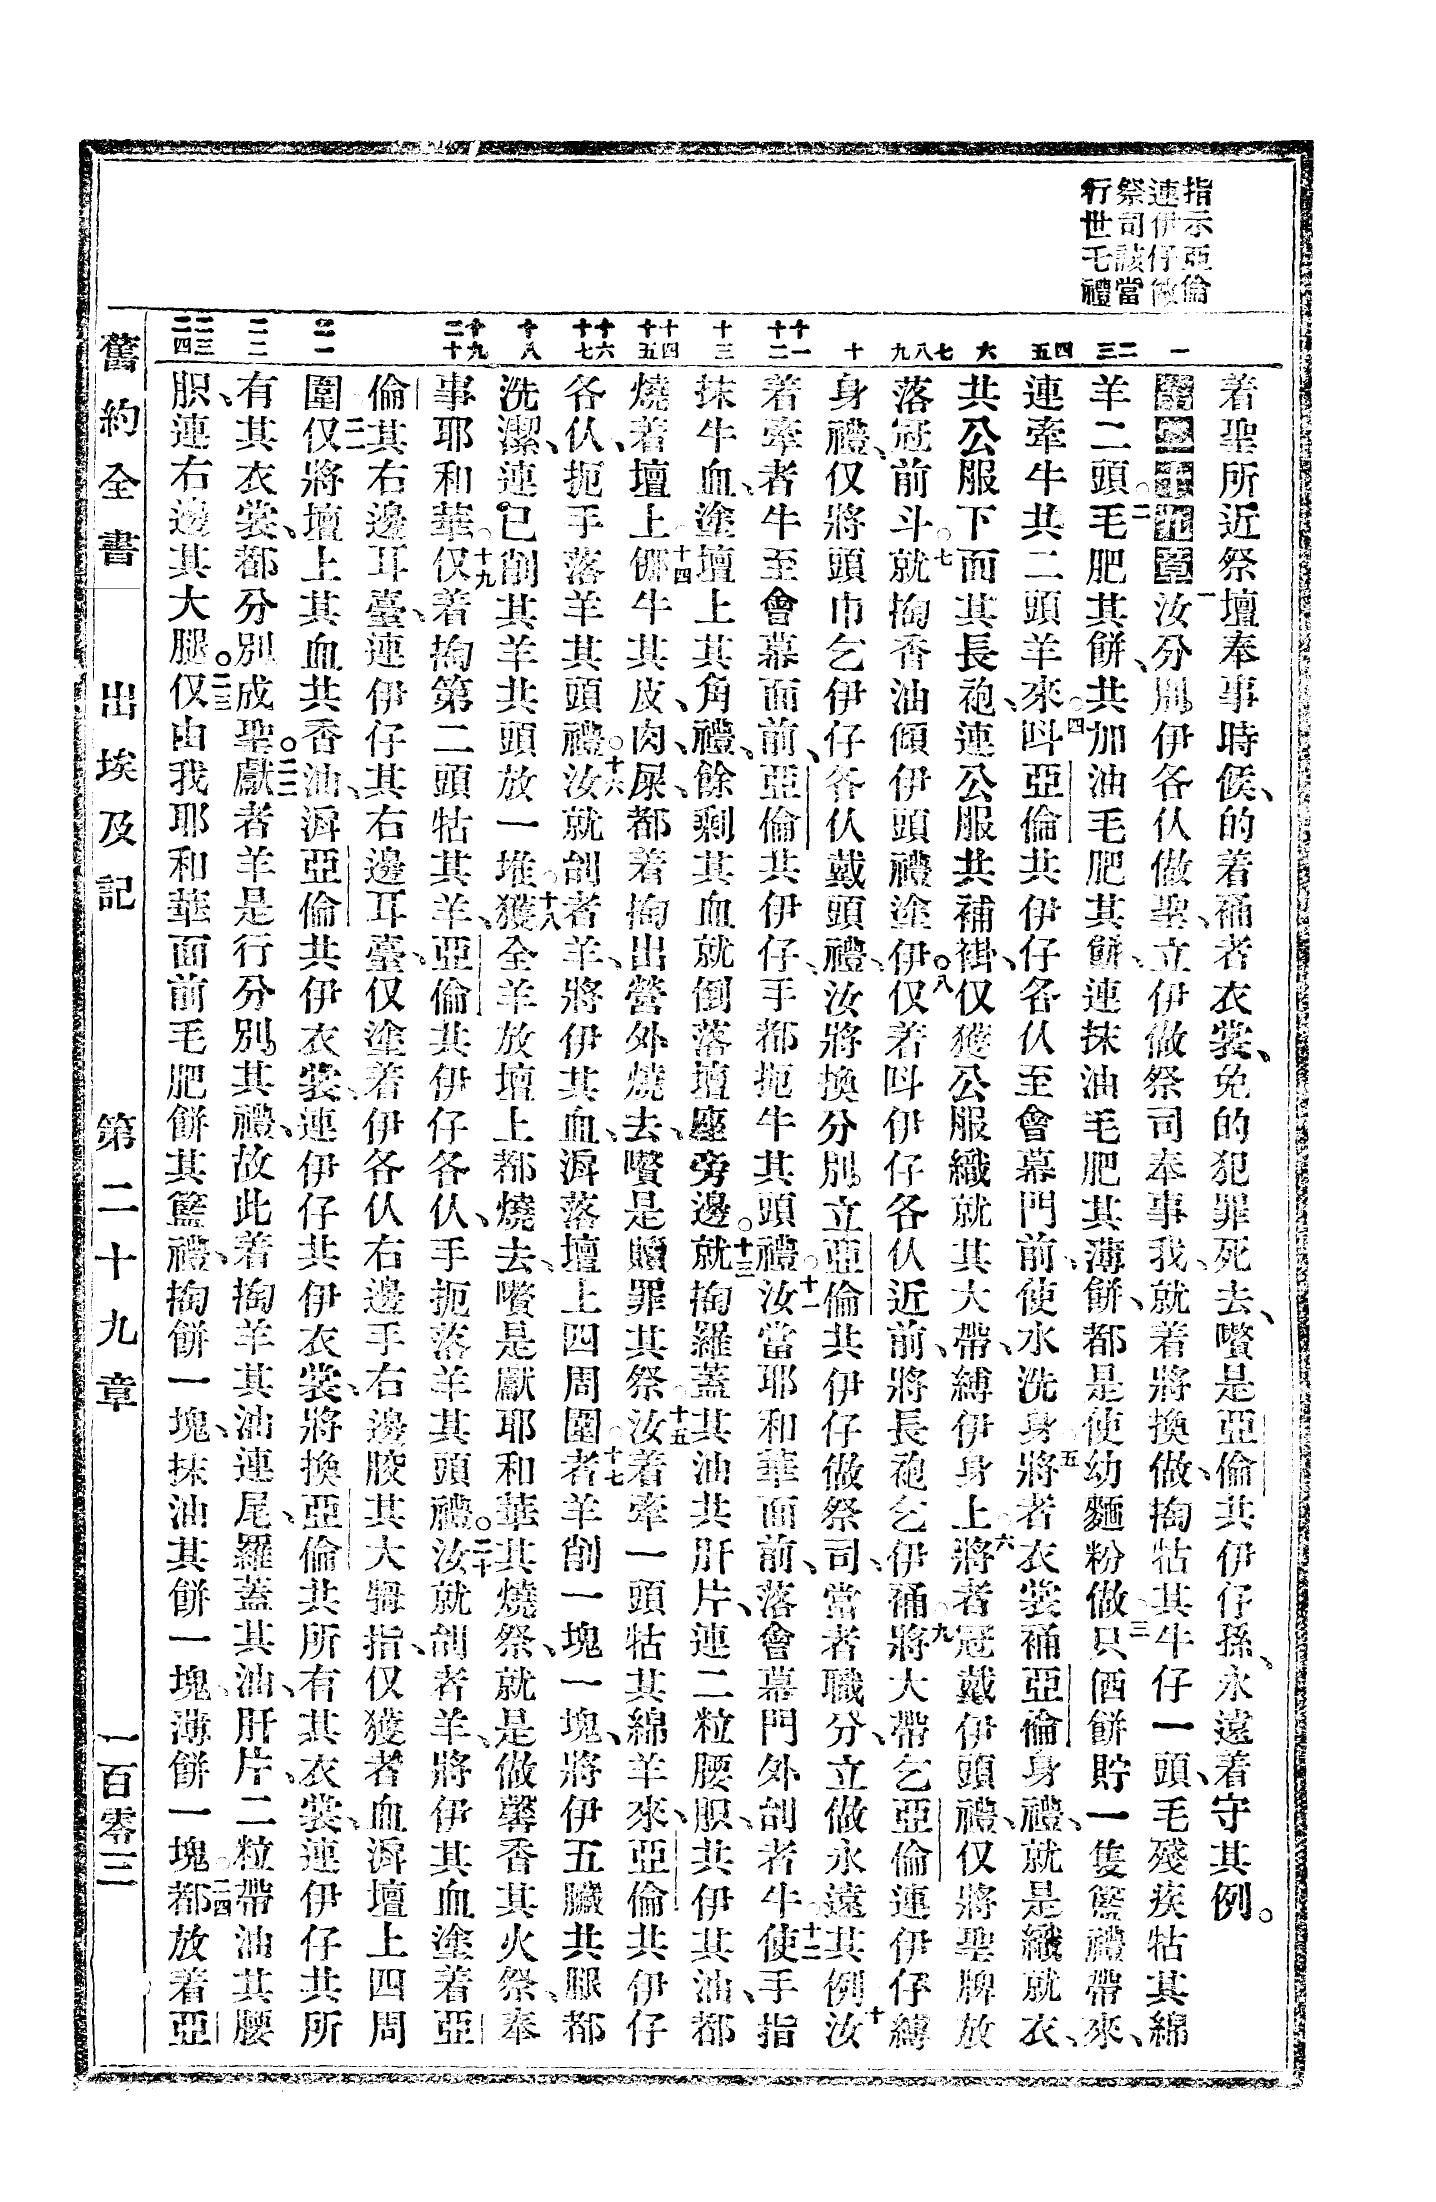 指示亞倫
連伊仔做
祭司該當
行世乇禮
一
二 三
四 五
六
七 八 九
十
十一 十二
十三
十四 十五
十六 十七
十八
十九 二十
二一
二二
二三 二四
着聖所近祭壇奉事時候、的着䘼者衣裳、免的犯罪死去、嚽是亞倫共伊仔孫、永遠着守其例。
第二十九章 一汝分別伊各仈做聖、立伊做祭司奉事我、就着將換做、掏牯其牛仔一頭、乇殘疾牯其綿
羊二頭。二乇肥其餅、共加油乇肥其餅、連抹油乇肥其薄餅、都是使幼麵粉做。三只僫餅貯一隻籃禮帶來、
連牽牛共二頭羊來。四叫亞倫共伊仔各仈至會幕門前、使水洗身。五將者衣裳䘼亞倫身禮、就是織就衣、
共公服下面其長袍、連公服共補褂、仅獲公服織就其大帶、縛伊身上。六將者冠戴伊頭禮、仅將聖牌放
落冠前斗。七就掏香油傾伊頭禮塗伊。八仅着叫伊仔各仈近前、將長袍乞伊䘼。九將大帶乞亞倫連伊仔縛
身禮、仅將頭巾乞伊仔各仈戴頭禮、汝將換分別、立亞倫共伊仔做祭司、當者職分、立做永遠其例。十汝
着牽者牛至會幕面前、亞倫共伊仔、手都扼牛其頭禮。十一汝當耶和華面前、落會幕門外、刣者牛。十二使手指
抹牛血、塗壇上其角禮、餘剩其血就倒落壇座旁邊。十三就掏羅蓋其油共肝片、連二粒腰脤、共伊其油、都
燒着壇上。十四𠲥牛其皮、肉、屎、都着掏出營外燒去、嚽是贖罪其祭。十五汝着牽一頭牯其綿羊來、亞倫共伊仔
各仈、扼手落羊其頭禮。十六汝就刣者羊、將伊其血、澍落壇上四周圍。十七者羊削一塊一塊、將伊五臟共腿都
洗潔、連已削其羊共頭放一堆。十八獲全羊放壇上都燒去、嚽是獻耶和華其燒祭、就是做馨香其火祭、奉
事耶和華。十九仅着掏第二頭牯其羊、亞倫共伊仔各仈、手扼落羊其頭禮。二十汝就刣者羊、將伊其血塗着亞
倫其右邊耳臺、連伊仔其右邊耳臺、仅塗着伊各仈右邊手右邊骹其大拇指、仅獲者血澍壇上四周
圍。二一仅將壇上其血共香油、澍亞倫共伊衣裳、連伊仔共伊衣裳、將換亞倫共所有其衣裳、連伊仔共所
有其衣裳、都分別成聖。二二獻者羊是行分別其禮、故此着掏羊其油連尾、羅蓋其油、肝片、二粒帶油其腰
脤、連右邊其大腿。二三仅由我耶和華面前乇肥餅其籃禮、掏餅一塊、抹油其餅一塊、薄餅一塊。二四都放着亞
舊約全書 出埃及記 第二十九章 一百零三